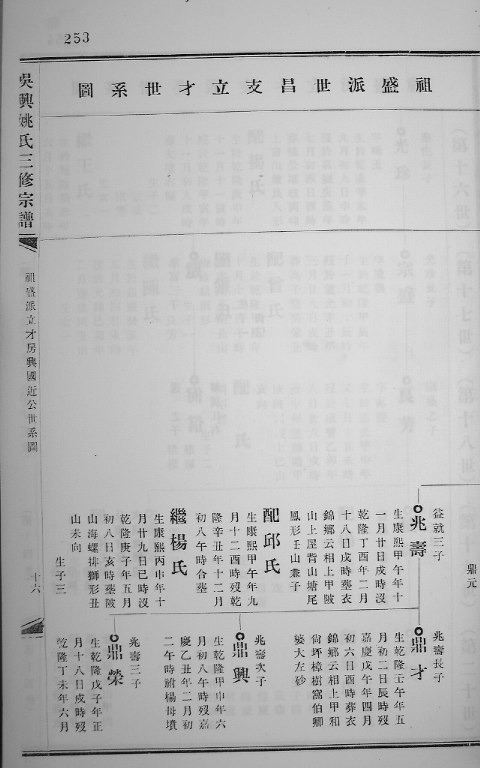 253
祖盛派世昌支立才世系圖
吳興姚氏三修宗譜
祖盛派立才房興國近公世系圖
十六
鼎元
益就三子
兆壽
生康熙甲午年十
一月廿日戌時沒
乾隆丁酉年二月
十八日戌時塟衣
錦鄉云相上甲陂
山上屋背山塘尾
鳳形壬山兼子
配邱氏
生康熙甲午年九
月十二酉時歿乾
隆辛丑年十二月
初八午時合塟
繼楊氏
生康熙丙申年十
月廿九日巳時沒
乾隆庚子年五月
初八日亥時塟陂
山海螺排獅形丑
山未向
生子三
兆壽長子
鼎才
生乾隆壬午年五
月初二日辰時歿
嘉慶戊午年四月
初六日酉時葬衣
錦鄉云相上甲和
尙坪樟樹窩伯卿
婆大左砂
兆壽次子
鼎興
生乾隆甲申年六
月初八午時歿嘉
慶乙丑年二月初
二午時祔楊母墳
兆壽三子
鼎榮
生乾隆戊子年正
月十八日戌時歿
乾隆丁未年六月